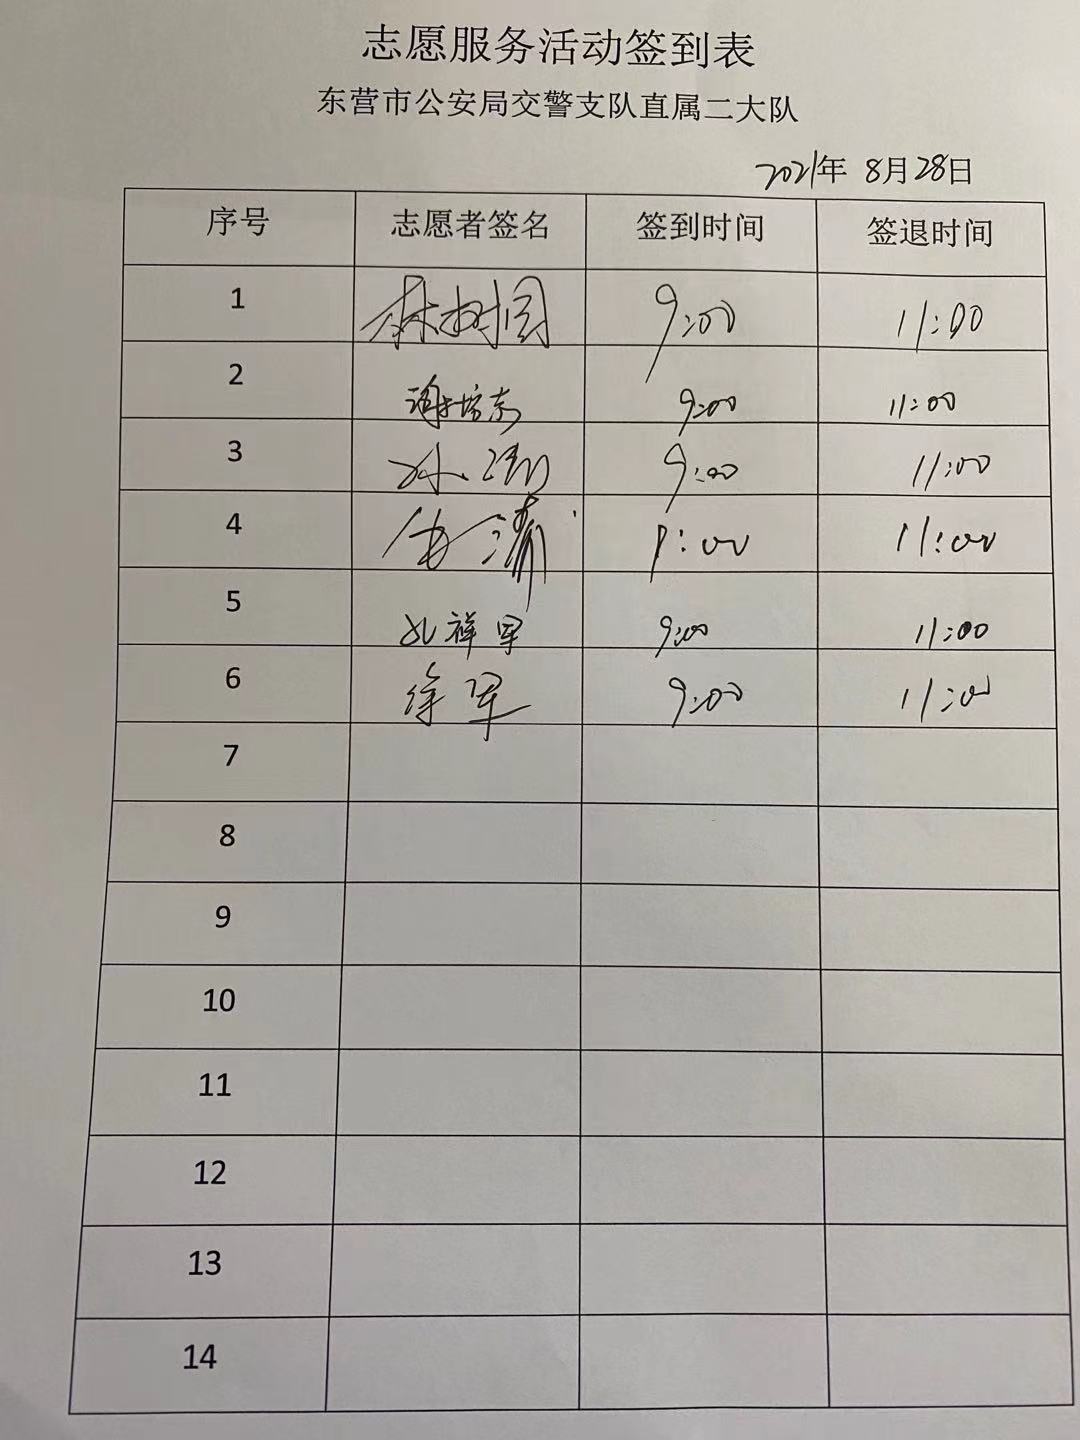 志愿服务活动签到表
东营市公安局交警支队直属二大队
2021年 8月28日
序号 志愿者签名 签到时间 签退时间
1 林树国 9:00 11:00
2 谢培东 9:00 11:00
3 孙涛 9:00 11:00
4 9:00 11:00
5 孔祥军 9:00 11:00
6 徐军 9:00 11:00
7
8
9
10
11
12
13
14